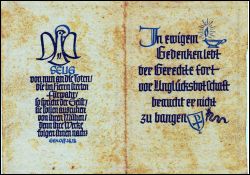 SELIG
von nun an die Toten,
die im Herrn sterben
so spricht der Geist,
sie sollen ausruhen
von ihren Mühen,
denn ihre Werke
folgen ihnen nach
In ewigem
Gedenken lebt
der Gerechte fort
vor Unglücksbotschaft
braucht er nicht
zu bangen